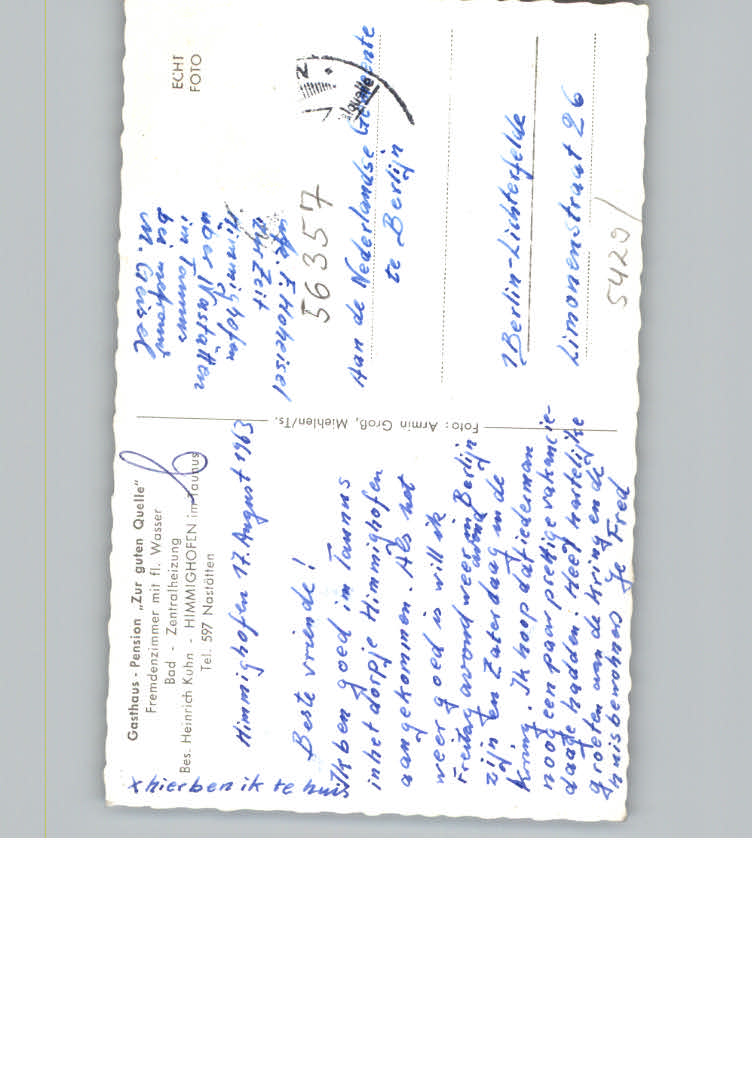 Gasthaus - Pension „Zur guten Quelle"
Fremdenzimmer mit fl. Wasser
Bad - Zentralheizung
Bes. Heinrich Kuhn - HIMMIGHOFEN im Taunus
Tel. 597 Nastätten
Himmighofen 17. August 1963
Beste vriende!
Ik ben goed im Taunus
in het dorpje Himmighofen
aangekommen. Als het
weer goed is will ik
Freitag avond weer in Berlijn
zijn en Zaterdag avond in de
Kring. Ik hoop dat iederman
noog een paar prettige vakancie-
daage hadden. Heel hartelijke
groeten aan de Kring en de
huisbewohnes Je Fred
x hier ben ik te huis
Foto: Armin Groß, Miehlen/Ts.
ECHT
FOTO
Abs. F. Hoheisel
zur Zeit
Himmighofen
über Nastätten
im Taunus
bei
M. Geisel
56357
Aan de Nederlandse Gemeente
te Berlijn
1 Berlin-Lichterfelde
Limonenstraat 26
5429/